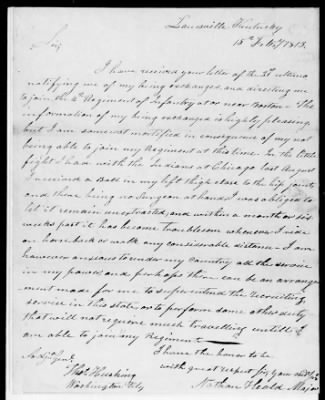 Louisville Kentucky
15th Feby 1813.
Sir,
I have received your letter of the 3d ultimo
notifying me of my being exchanged, and directing me
to join the 4th Regiment of Infantry at or near Boston. The
information of my being exchanged is highly pleasing
but I am somewhat mortified in consequence of my not
being able to join my Regiment at this time. In the little
fight I had with the Indians at Chicago last August
I received a Ball in my left thigh close to the hip joint,
and there being no Surgeon at hand I was obliged to
let it remain unextracted, and within a month or six
weeks past it has become troublesom whenever I ride
on horseback or walk any considerable distance. I am
however anxious to render my Country all the service
in my power and perhaps there can be an arrange
ment made for me to superintend the recruiting
service in this state, or to perform some other duty
that will not require much travelling untill I
am able to join my Regiment
I have the honor to be
with great respect Sir, your
Nathan Heald Major
Adjt Genl
Thos Cushing
Washington City